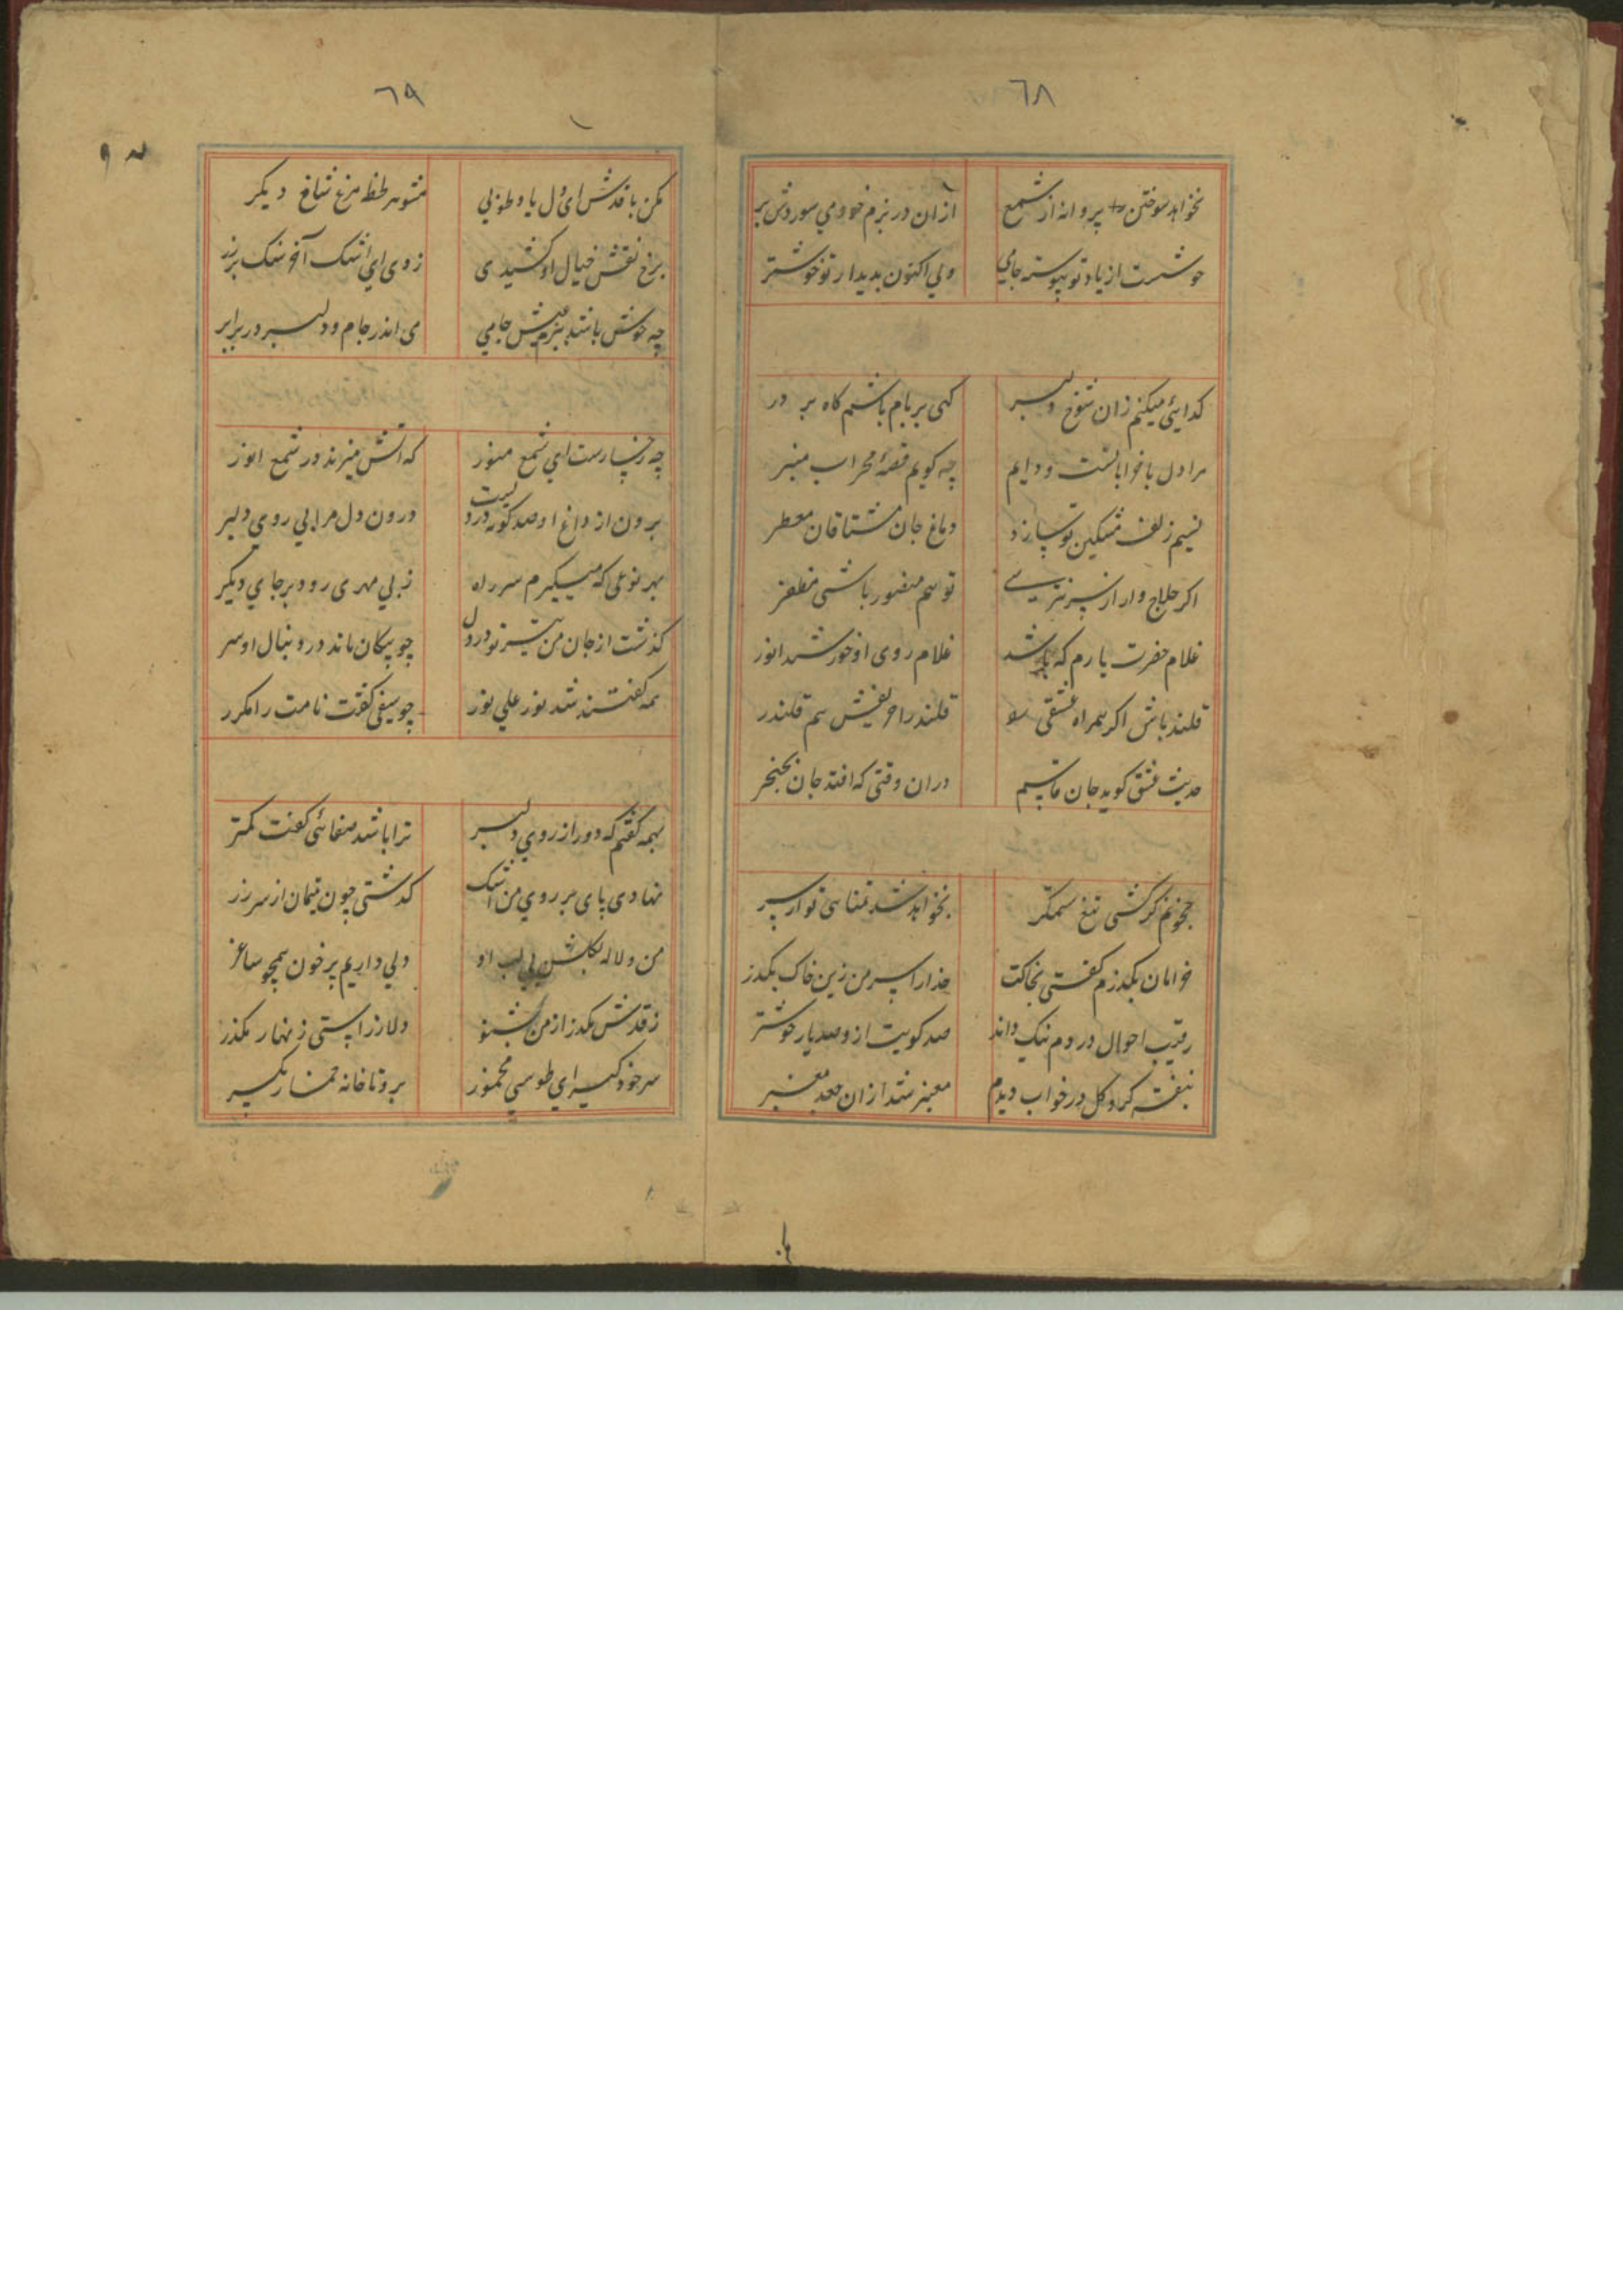 ٦٨
نخواهد سوختن پروانه از شمع
ازان در بزم خود می سوزدش پر
خوشست از یاد تو پیوسته جامی
ولی اکنون بدیدار تو خوشتر
کدایئ میکنم زان شوخ دلبر
کهی بر بام باشم کاه بر در
مرا دل با خراباتست و دایم
چه کویم قصهٔ محراب منبر
نسیم زلف مشکین تو سازد
دماغ جان مشتاقان معطر
اکر حلاج وار از سر نترسے
تو هم منصور باشی مظفر
غلام حضرت یارم که باشد
غلام روی او خورشید انور
قلندر باش اکر همراه عشقی
قلندر را حریفش هم قلندر
حدیث عشق کوید جان قاسم
دران وقتی که افتد جان بخنجر
بخونم کر کشی تیغ ستمکر
نخواهد شد تمنای تو از سر
خرامان بکذرم کفتی بخاکت
خدارا بر سر من زین خاک بکذر
رقیب احوال دردم نیک داند
صد کویت از و صد بار خوشتر
بنفشه کرد کل در خواب دیدم
معبر شد ازان جعد معنبر
٦٩
مکن با قدش ای دل یاد طوبی
مشو هر لحظه مرغ شاخ دیکر
برخ نقش خیال او کشیدی
زدی ای اشک آخر سکه بر زر
چه خوش باشد ببزم عیش جامی
می اندر جام و دلبر در برابر
چه رخسارست ای شمع منور
که آتش میزند در شمع انور
برون از داغ او صد کونه دردیست
درون دل مرا بی روی دلبر
بهر نوعی که میکیرم سر راه
ز بی مهری رود بر جای دیکر
کذشت از جان من تیر تو در دل
چو پیکان ماند در دنبال او سر
همه کفتند شد نور علی نور
چو سیفی کفت نامت را مکرر
بمه کفتم که دور از روی دلبر
ترا باشد صفائی کفت کمتر
نهادی پای بر روی من اشک
کذشتی چون یتیمان از سر زر
من و لاله بکلشن بی لب او
دلی داریم پر خون همچو ساغر
ز قدش بکذر از من بشنو
دلا از راستی زنهار بکذر
سر خود کیر ای طوسی مخمور
برو تا خانه خمار بکیر